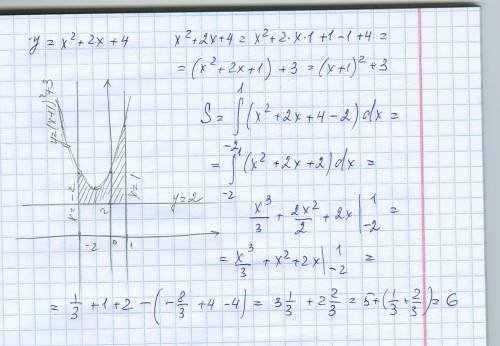 y = x² + 2x + 4
x² + 2x + 4 = x² + 2·x·1 + 1 - 1 + 4 =
= (x² + 2x + 1) + 3 = (x+1)² + 3
y = (x+1)² + 3
x = -2
x = 1
y = 2
2
-2 0 1
S = ∫₋₂¹ (x² + 2x + 4 - 2) dx =
= ∫₋₂¹ (x² + 2x + 2) dx =
x³/3 + 2x²/2 + 2x |₋₂¹ =
= x³/3 + x² + 2x |₋₂¹ =
= 1/3 + 1 + 2 - (-8/3 + 4 - 4) = 3 1/3 + 2 2/3 = 5 + (1/3 + 2/3) = 6